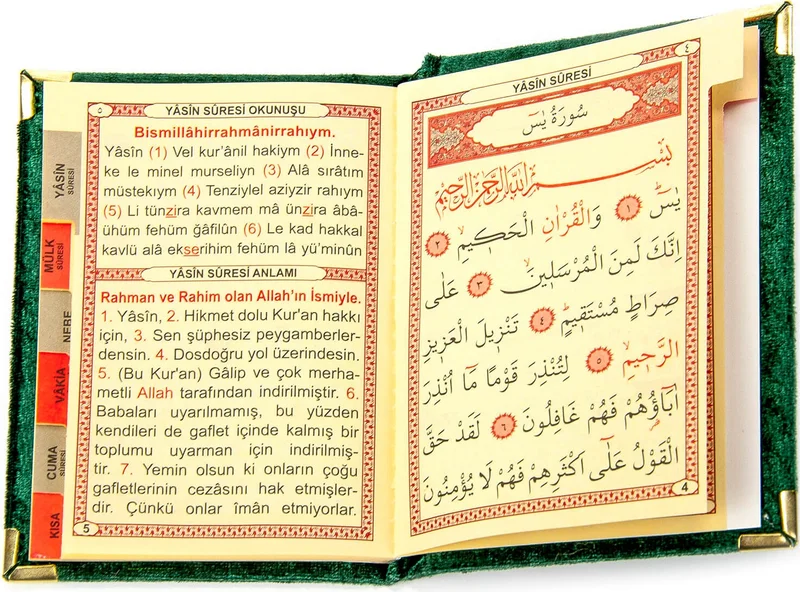 ٤
YÂSÎN SÛRESİ
سُورَةُ يٰسٓ
بِسْمِ اللّٰهِ الرَّحْمٰنِ الرَّحِيمِ
يٰسٓ ﴿١﴾ وَالْقُرْاٰنِ الْحَكِيمِۙ ﴿٢﴾
اِنَّكَ لَمِنَ الْمُرْسَلِينَۙ ﴿٣﴾ عَلٰى
صِرَاطٍ مُسْتَقِيمٍۜ ﴿٤﴾ تَنْزِيلَ الْعَزِيزِ
الرَّحِيمِۙ ﴿٥﴾ لِتُنْذِرَ قَوْمًا مَٓا اُنْذِرَ
اٰبَٓاؤُهُمْ فَهُمْ غَافِلُونَ ﴿٦﴾ لَقَدْ حَقَّ
الْقَوْلُ عَلٰٓى اَكْثَرِهِمْ فَهُمْ لَا يُؤْمِنُونَ
4
٥
YÂSÎN SÛRESİ OKUNUŞU
Bismillâhirrahmânirrahıym.
Yâsîn (1) Vel kur'ânil hakiym (2) İnne-
ke le minel murseliyn (3) Alâ sırâtım
müstekıym (4) Tenziylel aziyzir rahıym
(5) Li tünzira kavmem mâ ünzira âbâ-
ühüm fehüm ğâfilûn (6) Le kad hakkal
kavlü alâ ekserihim fehüm lâ yü'minûn
YÂSÎN SÛRESİ ANLAMI
Rahman ve Rahim olan Allah'ın İsmiyle.
1. Yâsîn, 2. Hikmet dolu Kur'an hakkı
için, 3. Sen şüphesiz peygamberler-
densin. 4. Dosdoğru yol üzerindesin.
5. (Bu Kur'an) Gâlip ve çok merha-
metli Allah tarafından indirilmiştir. 6.
Babaları uyarılmamış, bu yüzden
kendileri de gaflet içinde kalmış bir
toplumu uyarman için indirilmiş-
tir. 7. Yemin olsun ki onların çoğu
gafletlerinin cezâsını hak etmişler-
dir. Çünkü onlar îmân etmiyorlar.
5
YÂSÎN
SÛRESİ
MÜLK
SÛRESİ
NEBE
VÂKIA
CUMA
SÛRESİ
KISA